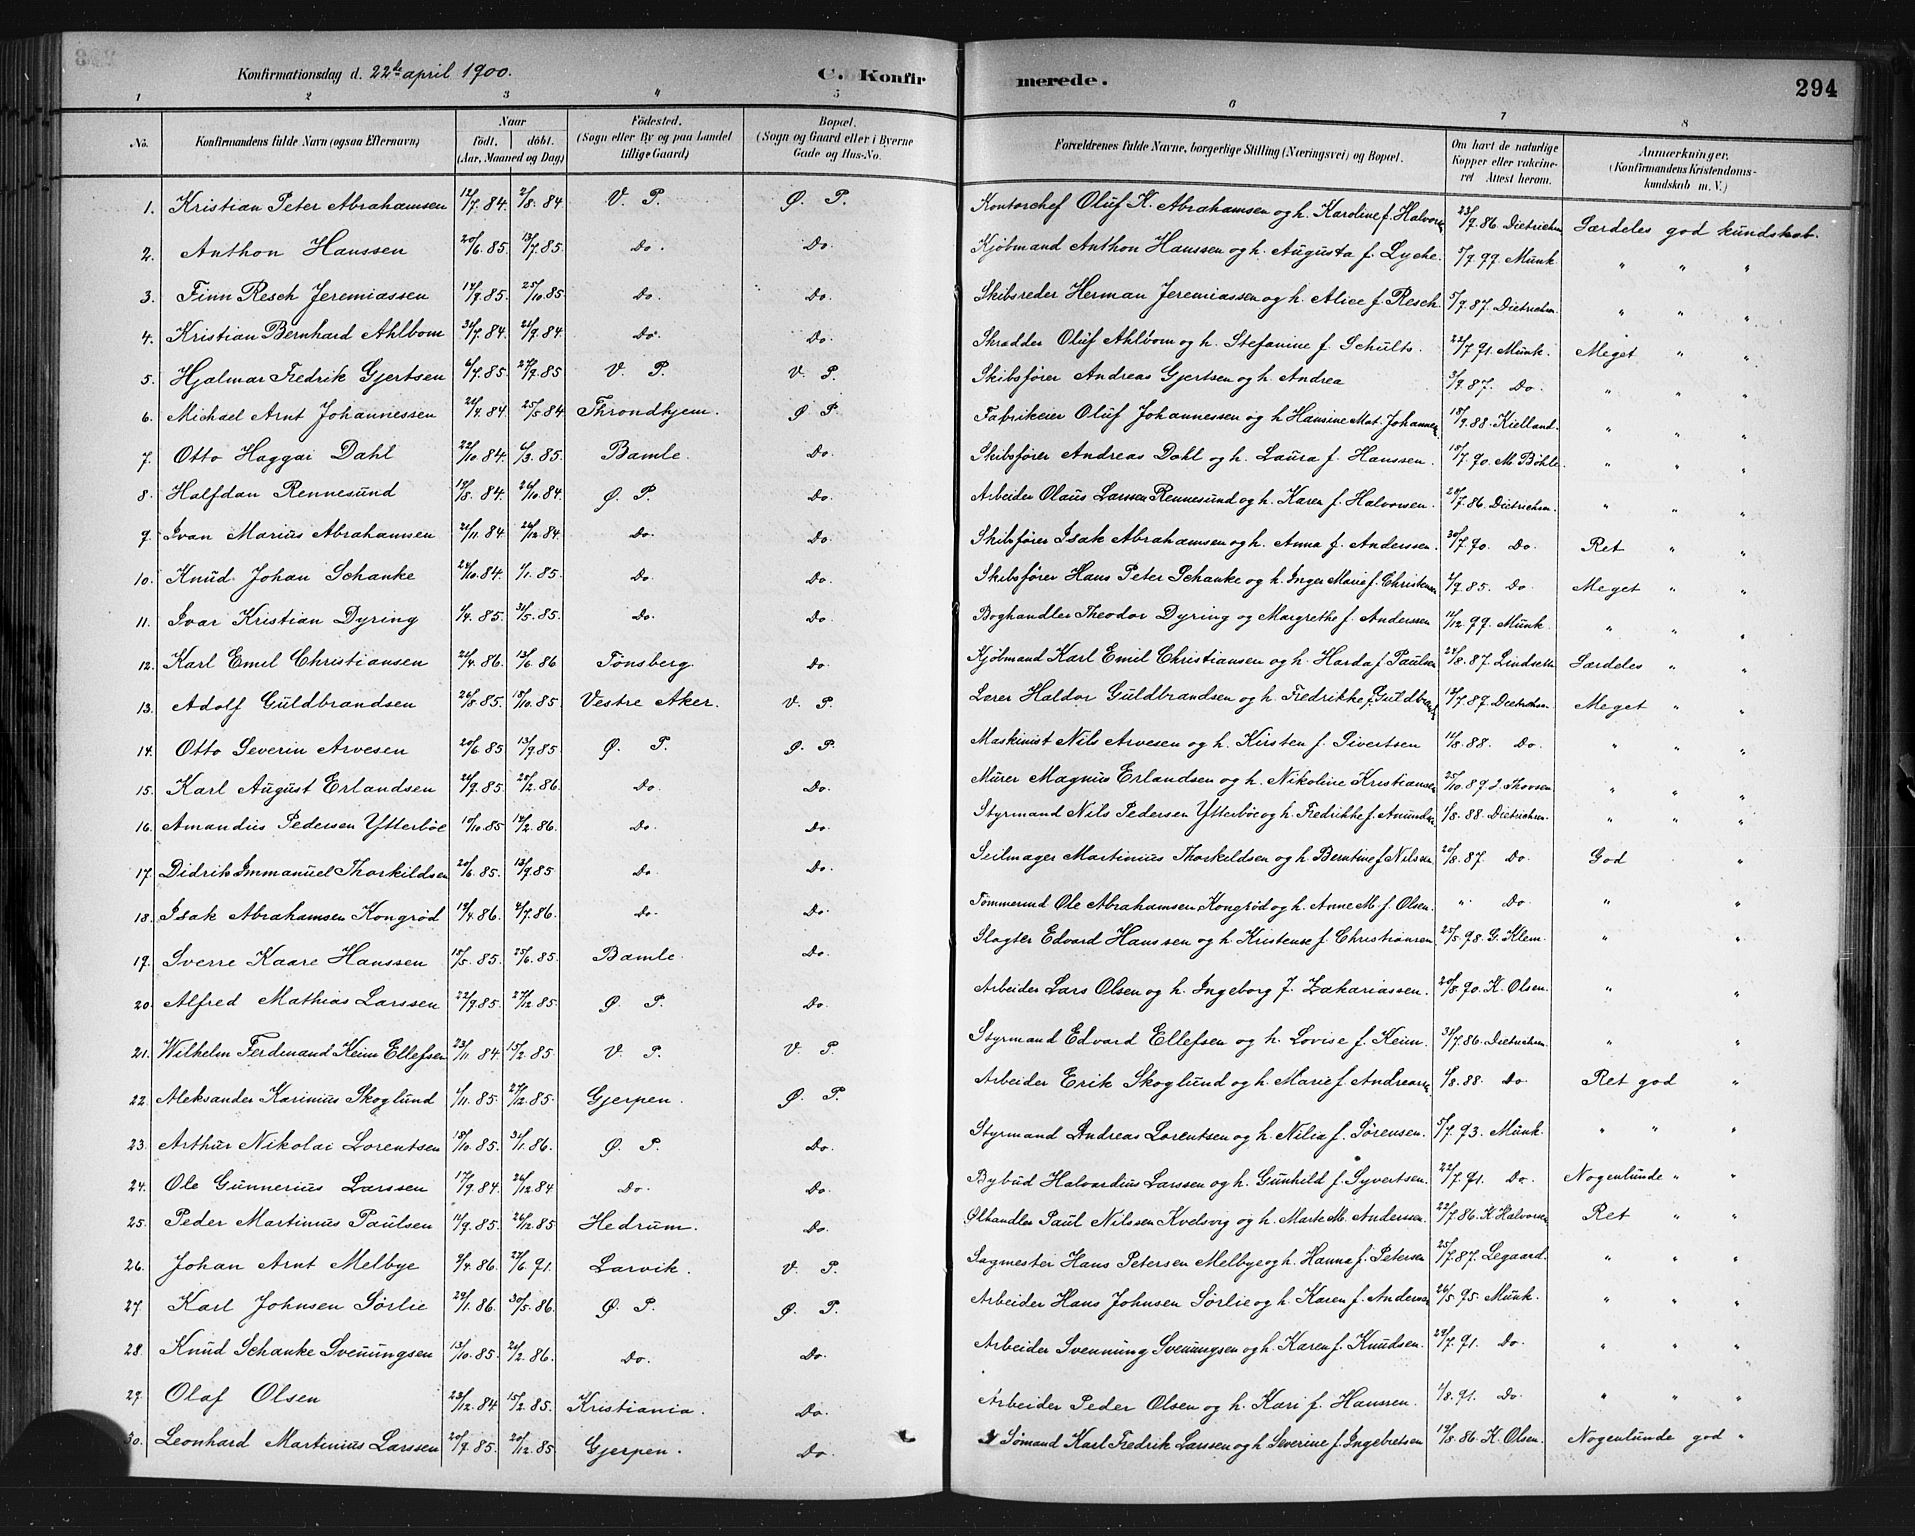 Konfirmationsdag d. 22de april 1900.
C. Konfirmerede.
294
1 2 3 4 5 6 7 8
No. | Konfirmandens fulde Navn (ogsaa Efternavn) | Naar födt. döbt. (Aar, Maaned og Dag) | Födested. (Sogn eller By og paa Landet tillige Gaard) | Bopæl. (Sogn og Gaard eller i Byerne Gade og Hus-No. | Forældrenes fulde Navne, borgerlige Stilling (Næringsvei) og Bopæl. | Om havt de naturlige Kopper eller vakcineret Attest herom. | Anmærkninger. (Konfirmandens Kristendomskundskab m. V.)
1. Kristian Peter Abrahamsen 12/7.84. 2/8.84 V. P. Ø. P. Kontorchef Oluf K. Abrahamsen og h. Karoline f. Halvorsen 23/9.86. Dietrichsen Særdeles god kundskab.
2. Anthon Hanssen 20/6.85. 13/7.85. Do. Do Kjöbmand Anthon Hanssen og h. Augusta f. Lyche. 5/9.99. Munk. " " "
3. Finn Resch Jeremiassen 14/9.85. 25/10.85 Do. Do. Skibsreder Herman Jeremiassen og h. Alice f. Resch. 5/9.87. Dietrichsen. " " "
4. Kristian Bernhard Ahlbom 31/7.84. 21/9.84. Do. Do. Skrædder Oluf Ahlbom og h. Stefanine f. Schults. 22/7.91. Munk. Meget " "
5. Hjalmar Fredrik Gjertsen 6/7.85. 27/9.85 V. P. V. P. Skibsfører Andreas Gjertsen og h. Andrea 3/9.87. Do. " " "
6. Michael Arnt Johannessen 21/4.84. 25/5.84 Throndhjem. Ø. P. Fabrikeier Oluf Johannessen og h Hansine Mat. Johannesen 18/9.88. Kielland. " " "
7. Otto Haggai Dahl 22/10.84. 6/3.85. Bamle. Do. Skibsfører Andreas Dahl og h. Laura f. Hanssen. 18/7.90. M. Böhle. " " "
8. Halfdan Rennesund 19/8.84. 26/10.84. Ø. P. Do. Arbeider Olaus Larssen Rennesund og h. Karen f. Halvorsen. 20/7.86. Dietrichsen. " " "
9. Ivan Marius Abrahamsen 21/11.84 26/12.84. Do. Do. Skibsfører Isak Abrahamsen og h. Anna f. Anderssen. 30/7.90. Do. Ret " "
10. Knud Johan Schanke 24/10.84. 1/1.85. Do. Do. Skibsfører Hans Peter Schanke og h. Inger Marie f. Christensen 2/9.85. Do. Meget " "
11. Ivar Kristian Dyring 4/4.85. 31/5.85. Do. Do. Boghandler Theodor Dyring og Margrethe f. Anderssen 12/12.99. Munk. " " "
12. Karl Emil Christiansen 21/4.86. 13/6.86 Tönsberg. Do. Kjöbmand Karl Emil Christiansen og h. Harda f. Paulsen 24/8.87. Lindseth Særdeles " "
13. Adolf Guldbrandsen 26/8.85. 18/10.85. Vestre Aker. V. P. Lærer Haldor Guldbrandsen og h. Fredrikke f. Guldbrands. 13/7.87. Dietrichsen. Meget " "
14. Otto Severin Arvesen 20/6.85 13/9.85. Ø. P. Ø. P. Maskinist Nils Arvesen og h. Kirsten f. Sivertsen 11/8.88. Do. " " "
15. Karl August Erlandsen 21/9.85. 20/2.86. Do. Do. Murer Magnus Erlandsen og h. Nikoline Kristiansen 25/10.89. J. Thorsen " " "
16. Amandus Pedersen Ytterböe 10/10.85 14/2.86. Do. Do. Styrmand Nils Pedersen Ytterböe og h. Fredrikke f. Amundsen 1/8.88. Dietrichsen. " " "
17. Didrik Immanuel Thorkildsen 20/6.85. 13/9.85 Do. Do. Seilmager Martinius Thorkildsen og h. Berntine f. Nilsen 20/8.87. Do God "
18. Isak Abrahamsen Kongröd 19/4.86. 4/7.86. Do. Do. Tömmermd Ole Abrahamsen Kongröd og h. Anne M. f. Olsen. " Do " "
19. Sverre Kaare Hanssen 18/5.85. 25/6.85. Bamle. Do. Slagter Edvard Hanssen og h. Kristense f. Christiansen 25/5.98. G. Klem. " "
20. Alfred Mathias Larssen 22/9.85. 27/12.85. Ø. P. Do. Arbeider Lars Olsen og h. Ingeborg f. Zakariassen. 20/8.90. K. Olsen. " "
21. Wilhelm Ferdinand Keim Ellefsen 23/11.84 15/2.85. V. P. V. P. Styrmand Edvard Ellefsen og h. Lovise f. Keim. 31/7.86. Dietrichsen. " "
22. Aleksander Karinius Skoglund 1/11.85. 27/12.85. Gjerpen. Ø. P. Arbeider Erik Skoglund og h. Marie f. Andreasen 1/8.88. Do Ret god "
23. Arthur Nikolai Lorentsen 18/10.85. 31/1.86. Ø. P. Do. Styrmand Andreas Lorentsen og h. Nilia f. Sørensen. 5/7.93. Munk. " " "
24. Ole Gunnerius Larssen 17/9.84. 26/12.84 Do. Do. Bybud Halvardius Larssen og h. Gunhild f. Syvertsen. 22/7.91. Do. Nogenlunde " "
25. Peder Martinius Paulsen 11/9.85. 26/12.85 Hedrum. Do. Ølhandler Paul Nilssen Kvelsvig og h. Marte M. Anderssen. 22/7.86. K Halvorsen Ret " "
26. Johan Arnt Melbye 9/4.86. 27/6.91. Larvik. V. P. Sagmester Hans Petersen Melbye og h. Hanna f. Petersen 25/7.87. Legaard. " " "
27. Karl Johnsen Sörlie 29/1.86. 30/5.86. Ø. P. Ø. P. Arbeider Hans Johnsen Sörlie og h. Karen f. Andersen 26/5.95. Munk. " " "
28. Knud Schanke Svenungsen 13/10.85. 21/2.86. Do. Do. Arbeider Svennung Svenungsen og h. Karen f. Knudsen. 29/7.91. Do. " " "
29. Olaf Olsen 23/12.84 15/2.85. Kristiania. Do. Arbeider Peder Olsen og h. Kari f. Hanssen. 1/8.91. Do. " " "
30. Leonhard Martinius Larssen 20/9.85. 20/12.85 Gjerpen. Do Sömand Karl Fredrik Larssen og h. Severine f. Ingebretsen 19/8.86. K. Olsen. Nogenlunde god "